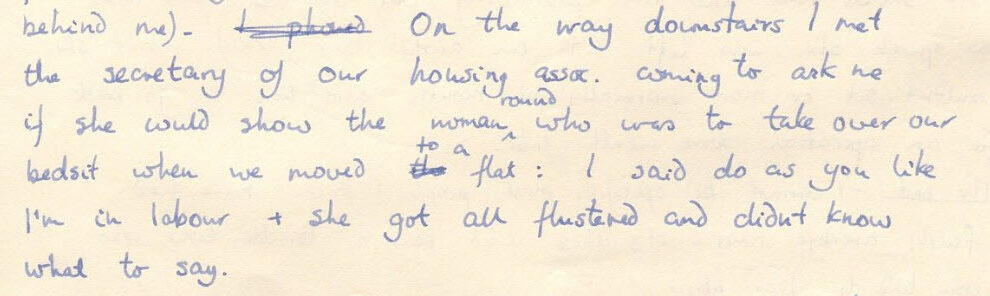 behind me). I phoned On the way downstairs I met
the secretary of our housing assoc. coming to ask me
if she could show the woman round who was to take over our
bedsit when we moved to a flat : I said do as you like
I'm in labour + she got all flustered and didnt know
what to say.